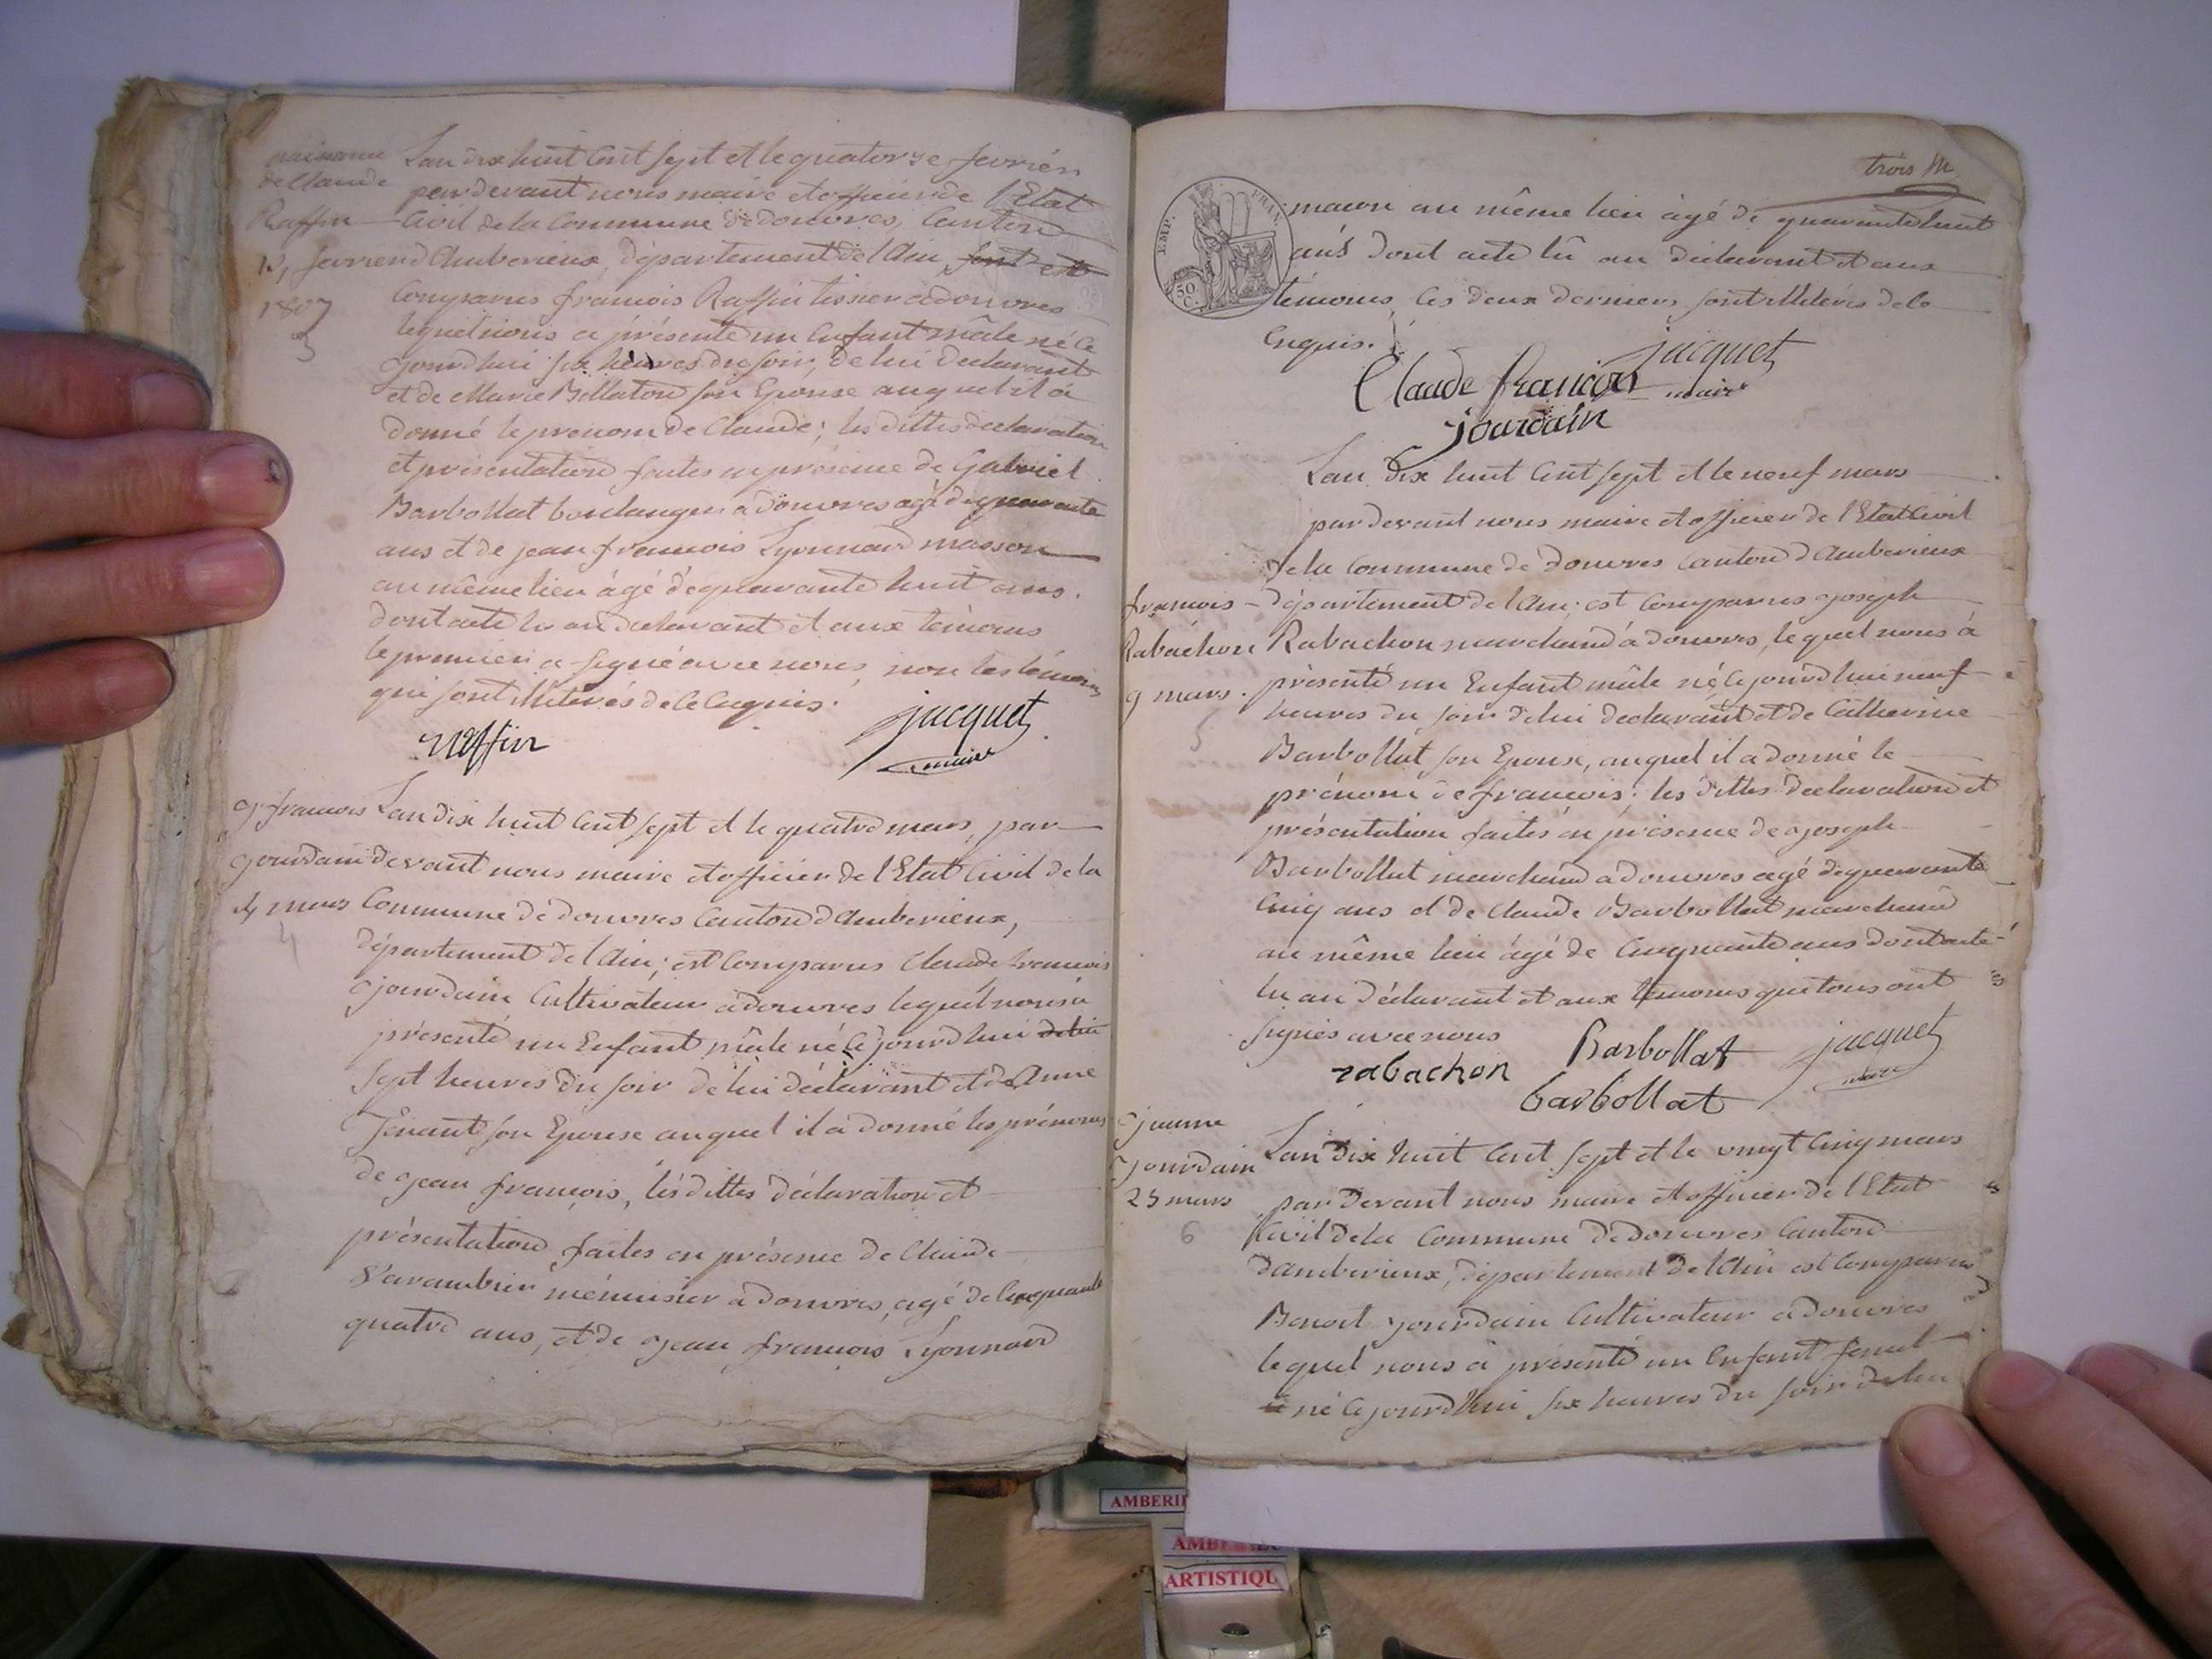 naissance
de Claude
Raffin
13, fevrier
1807
3
Lan dix huit cent sept et le quatorze fevrier
par devant nous maire et officier de l'Etat
Civil de la Commune de douvres, Canton
d'Amberieux, département de l'Ain, sont est
Comparus francois Raffin tissier a douvres
lequel nous a présenté un Enfant mâle né ce
jourdhui six heures du soir, de lui declarant
et de Marie Bollaton son Epouse auquel il a
donné le prenom de Claude; les dittes declaration
et présentation faites en présence de Gabriel
Barbollat boulanger a douvres agé de quarante
ans et de jean francois Lyonnard masson
au même lieu âgé de quarante huit ans,
dont acte lu au declarant et aux témoins
le premier a signé avec nous, non les témoins
qui sont illiterés de ce enquis.
raffin
jacquet
maire
jn francois
jourdain
4 mars
4
Lan dix huit cent sept et le quatre mars, par
devant nous maire et officier de l'Etat Civil de la
Commune de douvres Canton d'Amberieux,
département de l'Ain; est Comparus Claude francois
jourdain Cultivateur a douvres lequel nous a
présenté un Enfant mâle né ce jourdhui
sept heures du soir de lui déclarant et de Anne
Tenant son Epouse auquel il a donné les prénoms
de jean françois, les dittes déclaration et
présentation faites en présence de Claude
Varambier ménuisier a douvres, agé de cinquante
quatre ans, et de jean francois Lyonnard
trois
EMP. FRAN.
50 C.
macon au même lieu âgé de quarante huit
ans dont acte lû au déclarant et aux
témoins, les deux derniers sont illiterés de ce
enquis.
jacquet
maire
Claude francois
jourdain
Lan dix huit cent sept et le neuf mars
par devant nous maire et officier de l'Etat Civil
de la Commune de douvres Canton d'Amberieux
françois
Rabachon
9 mars.
5
département de l'Ain; est Comparus joseph
Rabachon marchand à douvres, lequel nous à
présenté un Enfant mâle né ce jourdhui neuf
heures du soir de lui declarant et de Catherine
Barbollat son Epouse, auquel il a donné le
prénom de françois; les dittes declaration et
présentation faites en présence de joseph
Barbollat marchand a douvres agé de quarante
cinq ans et de Claude Barbollat marchand
au même lieu âgé de cinquante ans dont acte
lu au déclarant et aux témoins qui tous ont
signés avec nous
rabachon
Barbollat
barbollat
jacquet
maire
jeanne
jourdain
25 mars
6
Lan dix huit cent sept et le vingt cinq mars
par devant nous maire et officier de l'Etat
Civil de la Commune de Douvres Canton
d'amberieux, département de l'Ain est Comparus
Benoit jourdain Cultivateur a douvres
lequel nous à présenté un Enfant femel
né ce jourdhui six heures du soir de lui
AMBERI
AMBE
ARTISTIQU